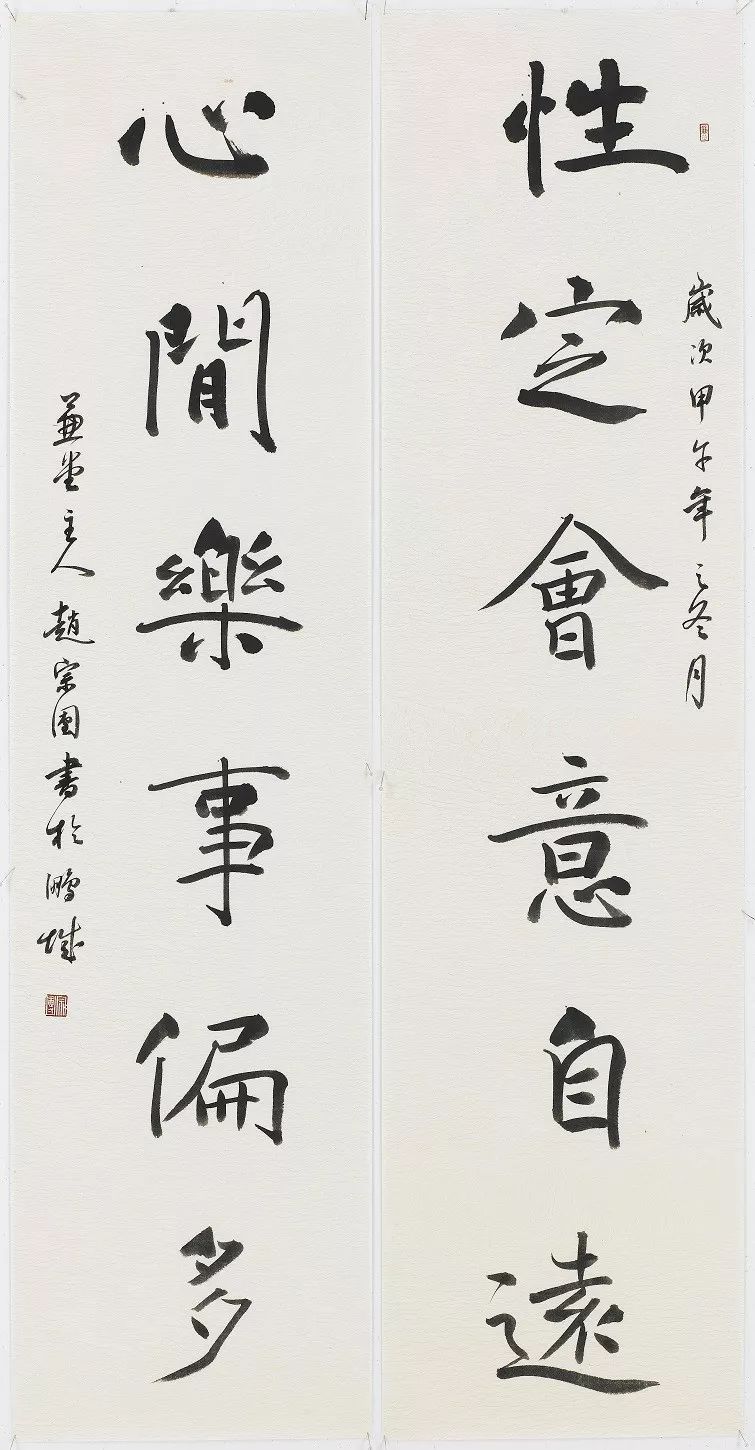 性定會意自遠
歲次甲午年之冬月
心閒樂事偏多
主人趙宗團書於鵬城